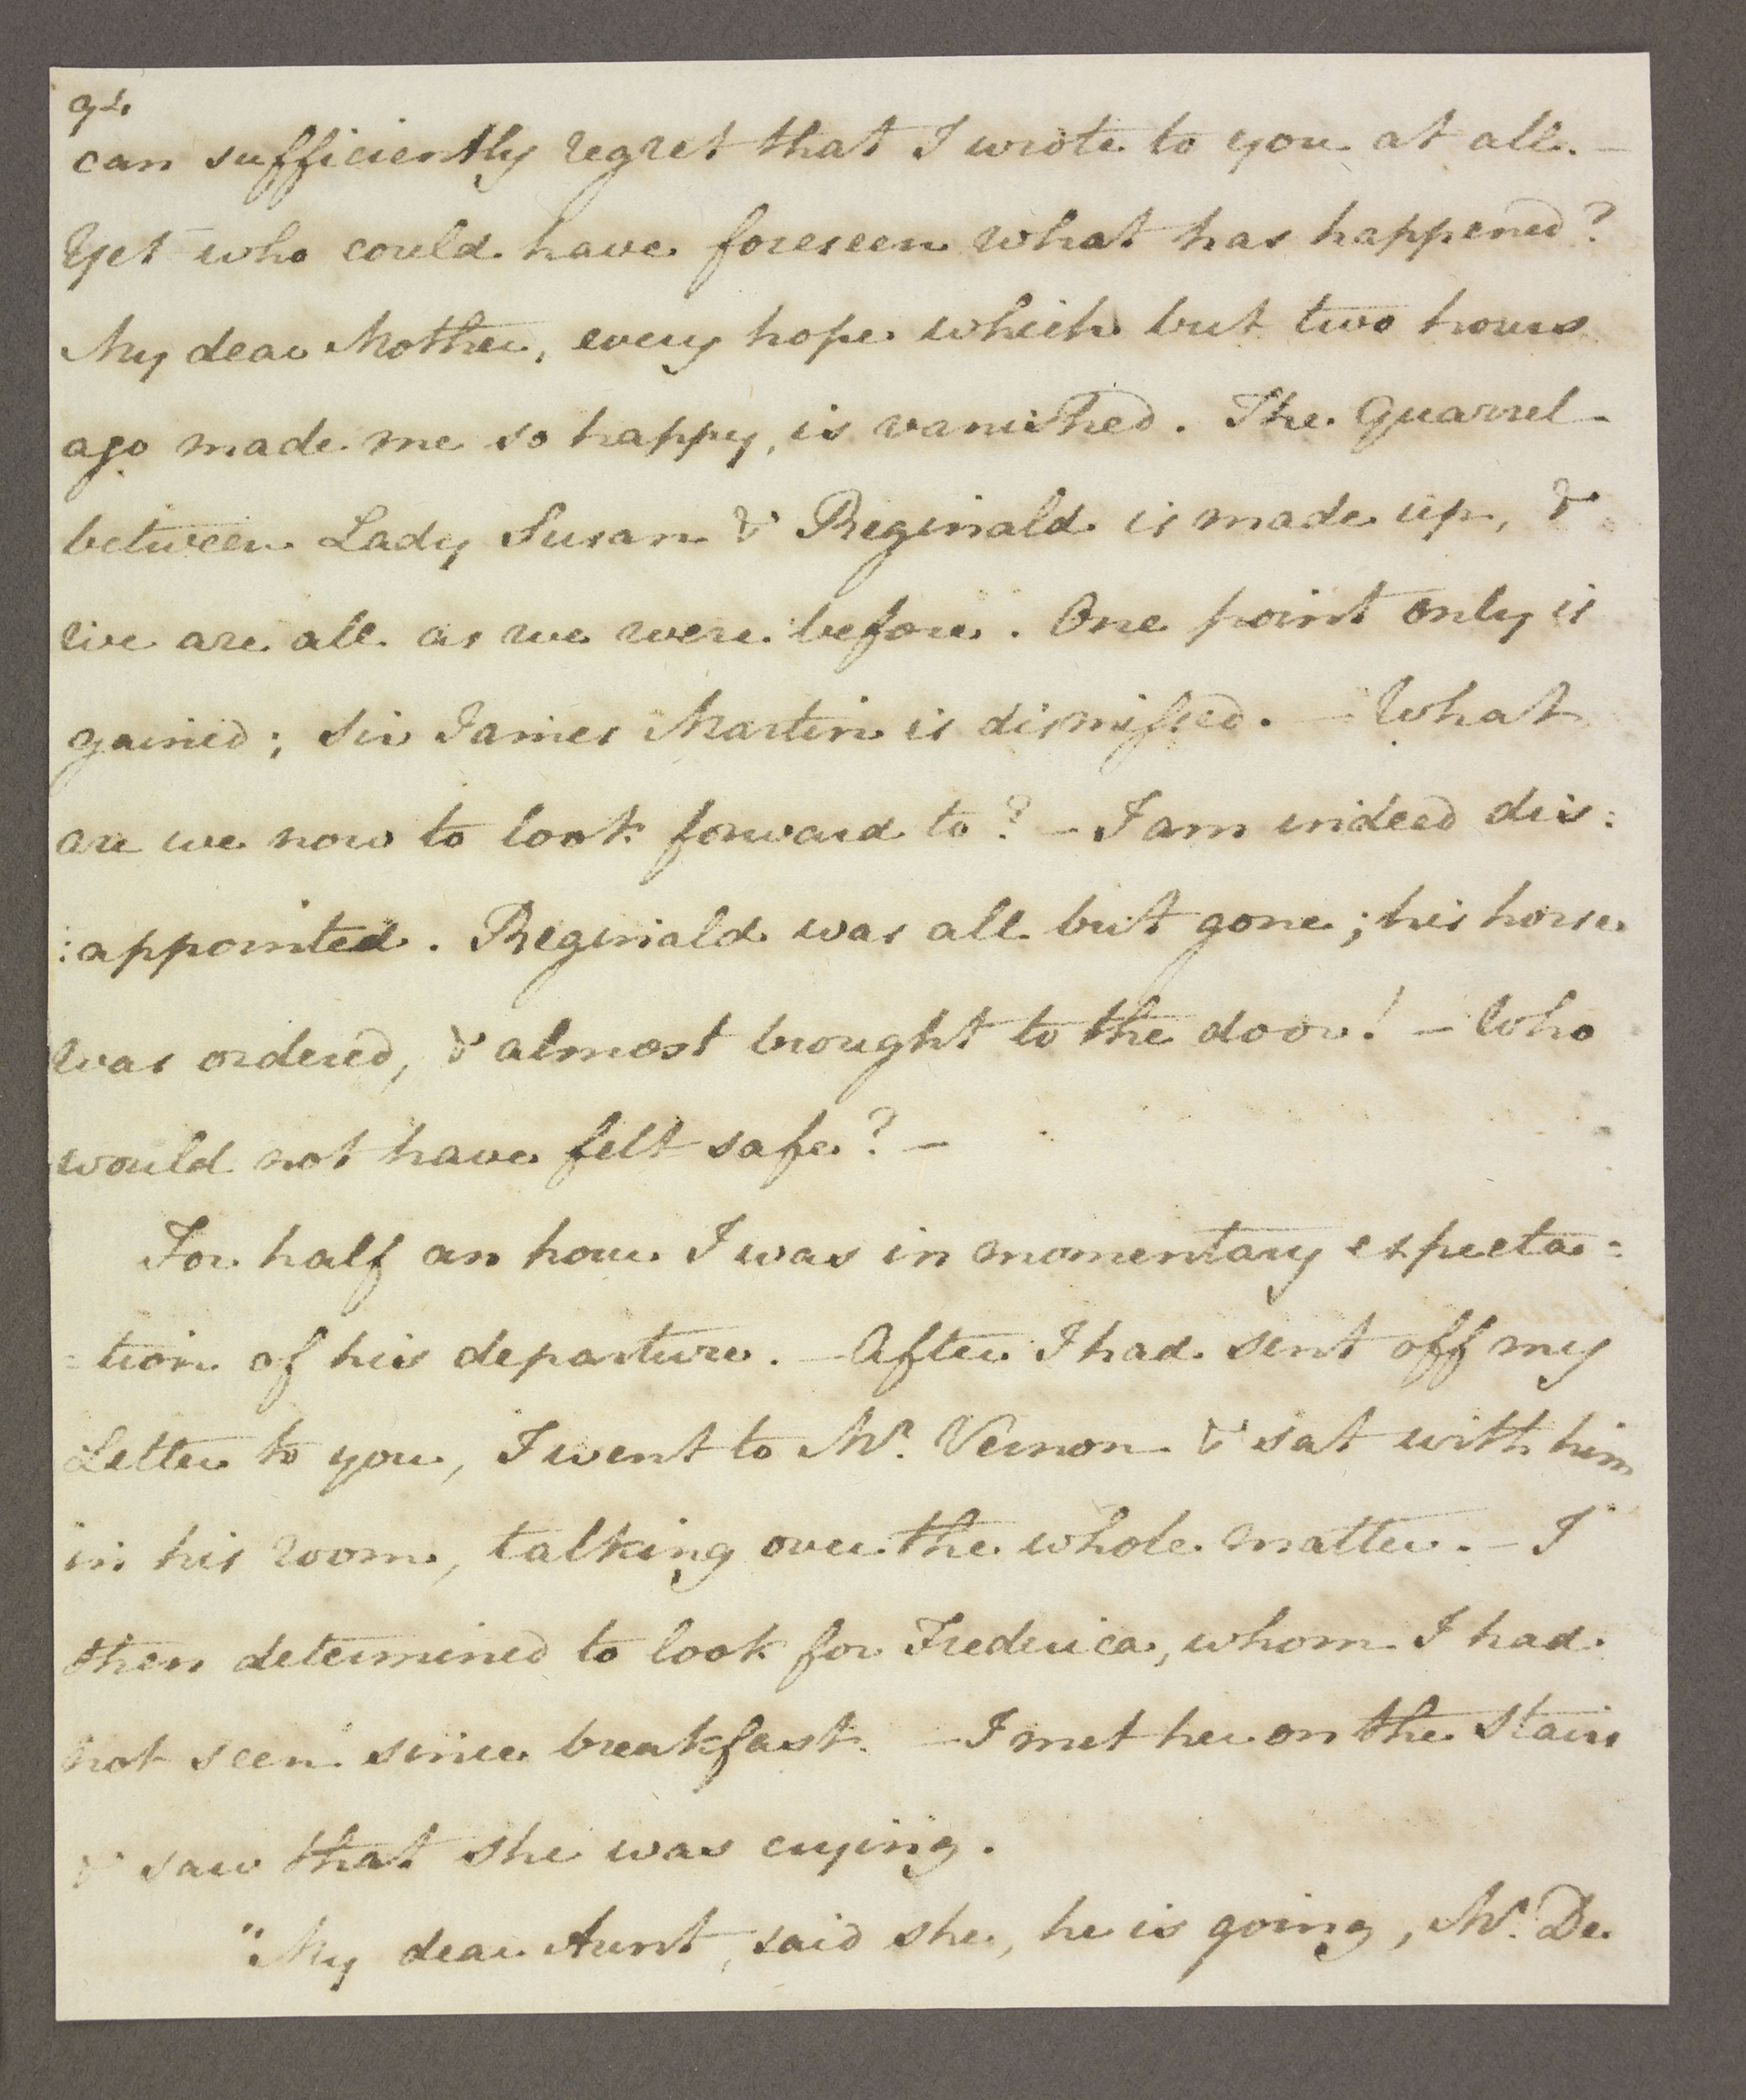 94
can sufficiently regret that I wrote to you at all. —
Yet who could have foreseen what has happened?
My dear Mother, every hope which but two hours
ago made me so happy, is vanished. The Quarrel
between Lady Susan & Reginald is made up, &
we are all as we were before. One point only is
gained; Sir James Martin is dismissed. — What
are we now to look forward to? — I am indeed dis:
:appointed. Reginald was all but gone; his horse
was ordered, & almost brought to the door! — Who
would not have felt safe? —
For half an hour I was in momentary expecta=
=tion of his departure. — After I had sent off my
Letter to you, I went to Mr. Vernon & sat with him
in his room, talking over the whole matter. — I
then determined to look for Frederica, whom I had
not seen since breakfast. — I met her on the Stairs
& saw that she was crying.
"My dear Aunt, said she, he is going, Mr. De